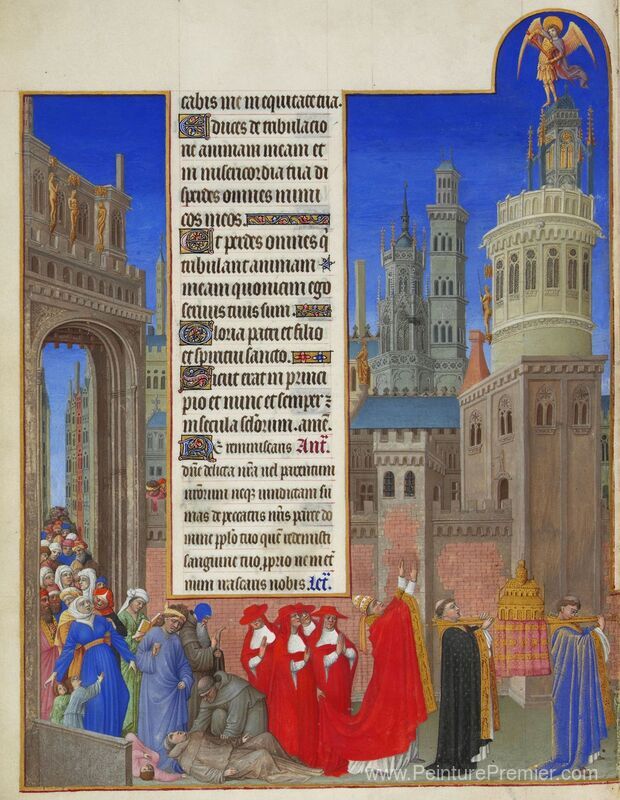 cabis me in equitate tua.
Educes de tribulacio
ne animam meam et
in misericordia tua di
sperdes omnes inimi
cos meos.
Et perdes omnes q̄
tribulant animam
meam quoniam ego
servus tuus sum.
Gloria patri et filio
et spiritui sancto.
Sicut erat in princi
pio et nunc et semper ⁊
in secula sc̄lorum. amē.
Ne reminiscaris Ant̄.
dn̄e delicta nr̄a vel parentum
nr̄orum neqꝫ vindictam su
mas de peccatis nr̄is parce do
mine pplo tuo quē redemisti
sanguine tuo pprio ne in et̄
num irascaris nobis. Let̄.
www.PeinturePremier.com